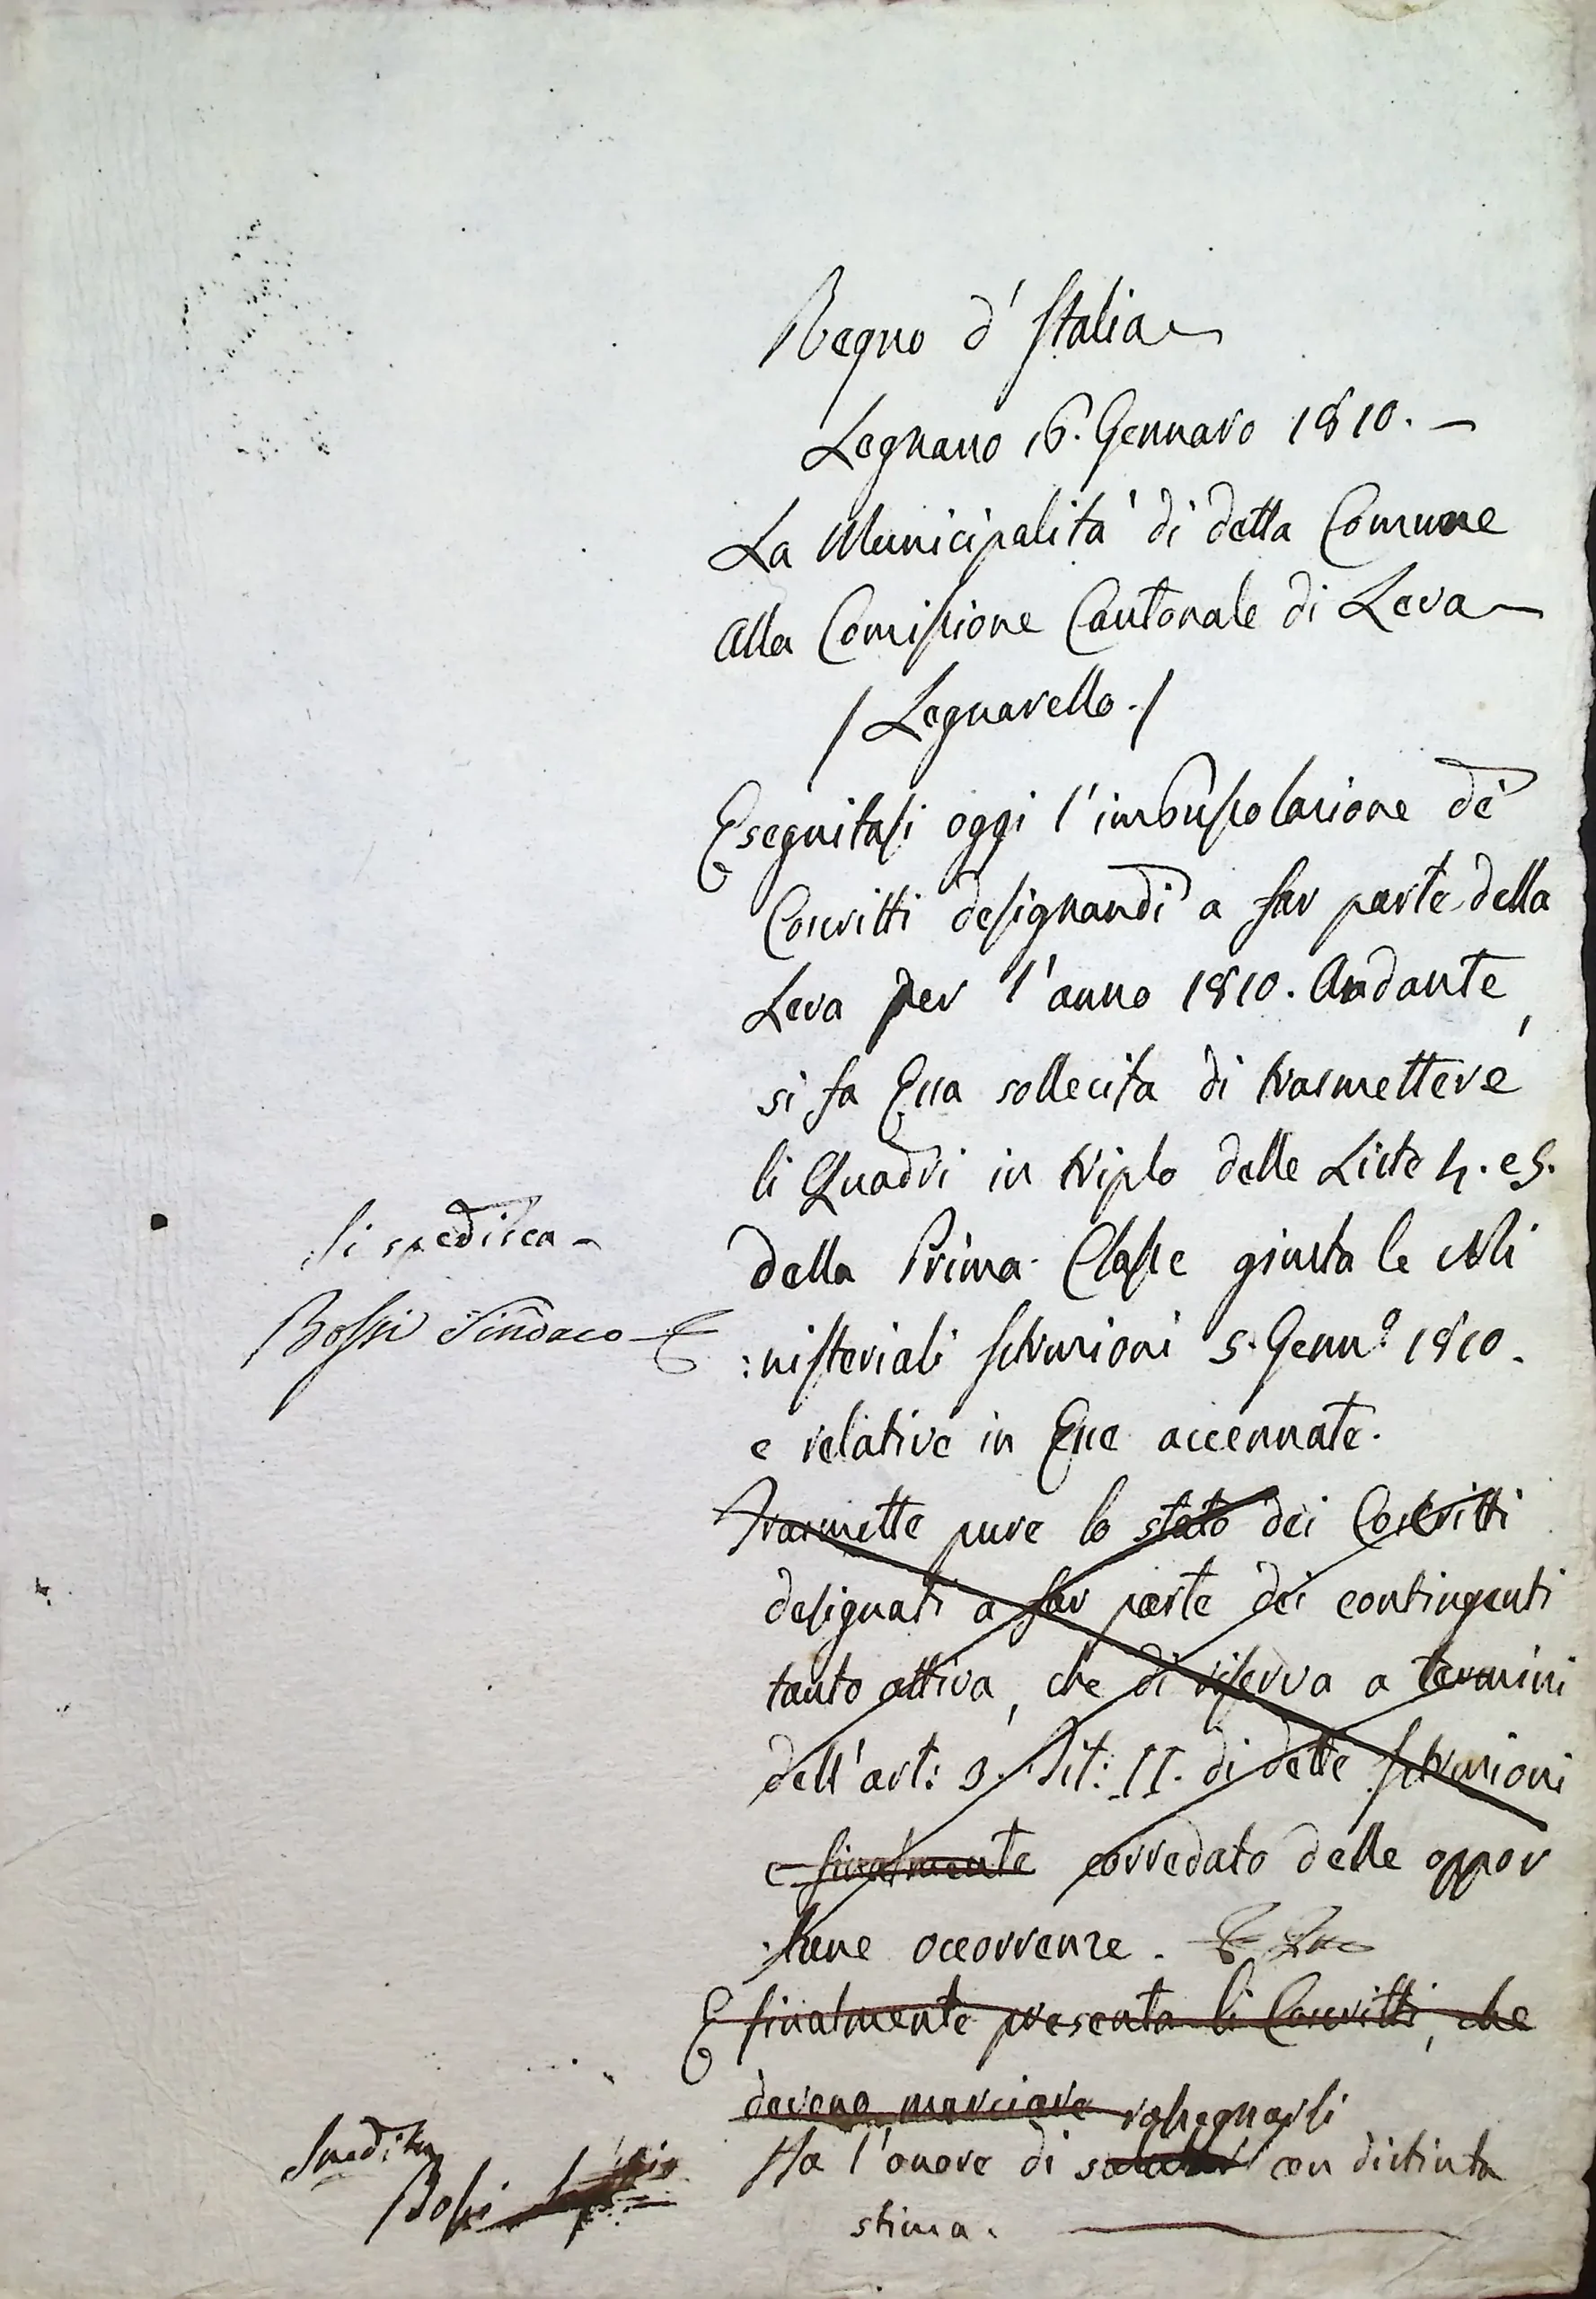 Regno d'Italia
Legnano 16. Gennaro 1810. –
La Municipalità di detta Comune
Alla Comissione Cantonale di Leva
/ Legnarello. /
Eseguitasi oggi l'imbussolazione de'
Coscritti designandi a far parte della
Leva per l'anno 1810. Andante,
si fa Essa sollecita di trasmettere
li Quadri in triplo delle Liste 4. e 5.
della Prima Classe giusta le Mi
:nisteriali Istruzioni 5. Genn.o 1810.
e relative in Esse accennate.
Trasmette pure lo stato dei Coscritti
designati a far parte dei contingenti
tanto attiva, che di riserva a termini
dell'art: 3. Tit: II. di dette Istruzioni
e finalmente corredato delle oppor
:tune occorrenze.
E finalmente presenta li Coscritti, che
deveno marciare rassegnarsi
Ha l'onore di con distinta
stima.
Si spedisca –
Bossi Sindaco
Spedita
Bossi